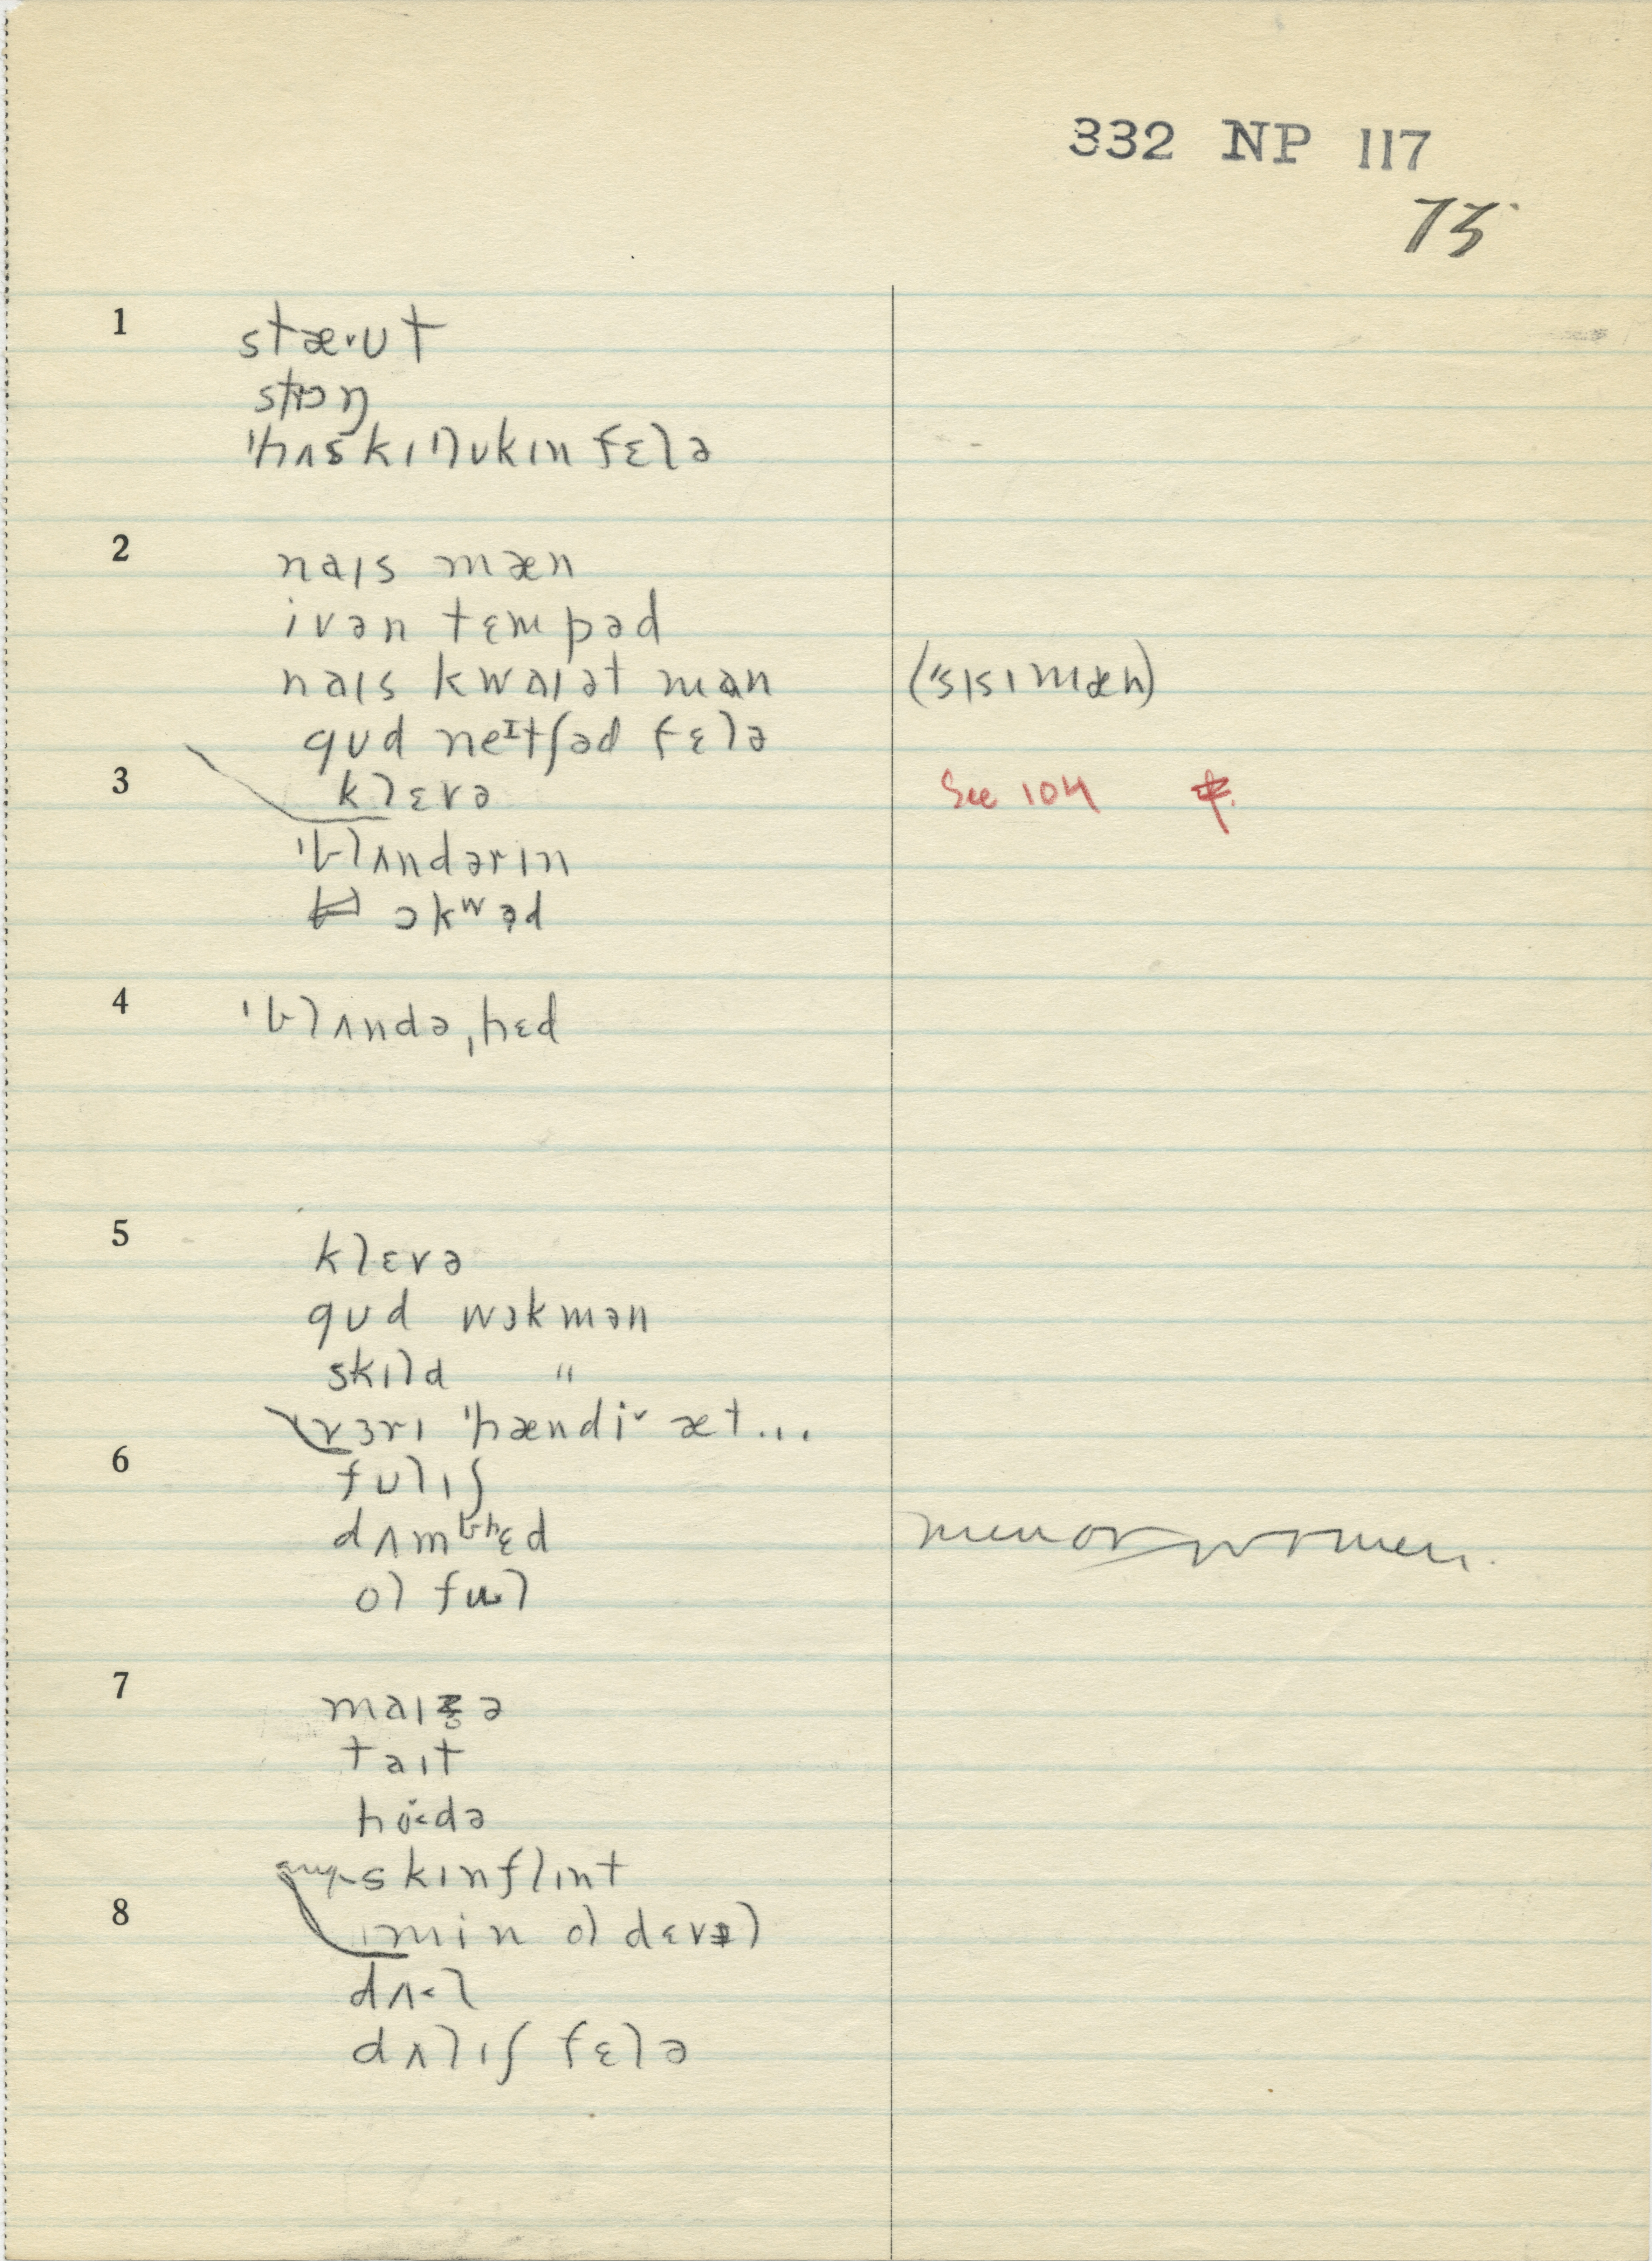 332 NP 117
73
1 stæ˅ʊt
strɔŋ
ˈhʌskɪ lʊkɪn fɛlə
2 naɪs mæn
ivən tɛmpəd
naɪs kwaɪət man (ˈsɪsɪmæn)
gʊd neɪtʃəd fɛlə
3 klɛvə See 104
ˈblʌndərɪn
ɔkwəd
4 ˈblʌndəˌhɛd
5 klɛvə
gʊd wɜkmən
skɪld "
vɜrɪ ˈhændi˅ æt...
6 fʊlɪʃ
dʌmbhɛd men or women.
ol ful
7 maɪzə
taɪt
hɔdə
skɪnflɪnt
8 min ol dɛvəl
dʌ˂l
dʌlɪʃ fɛlə